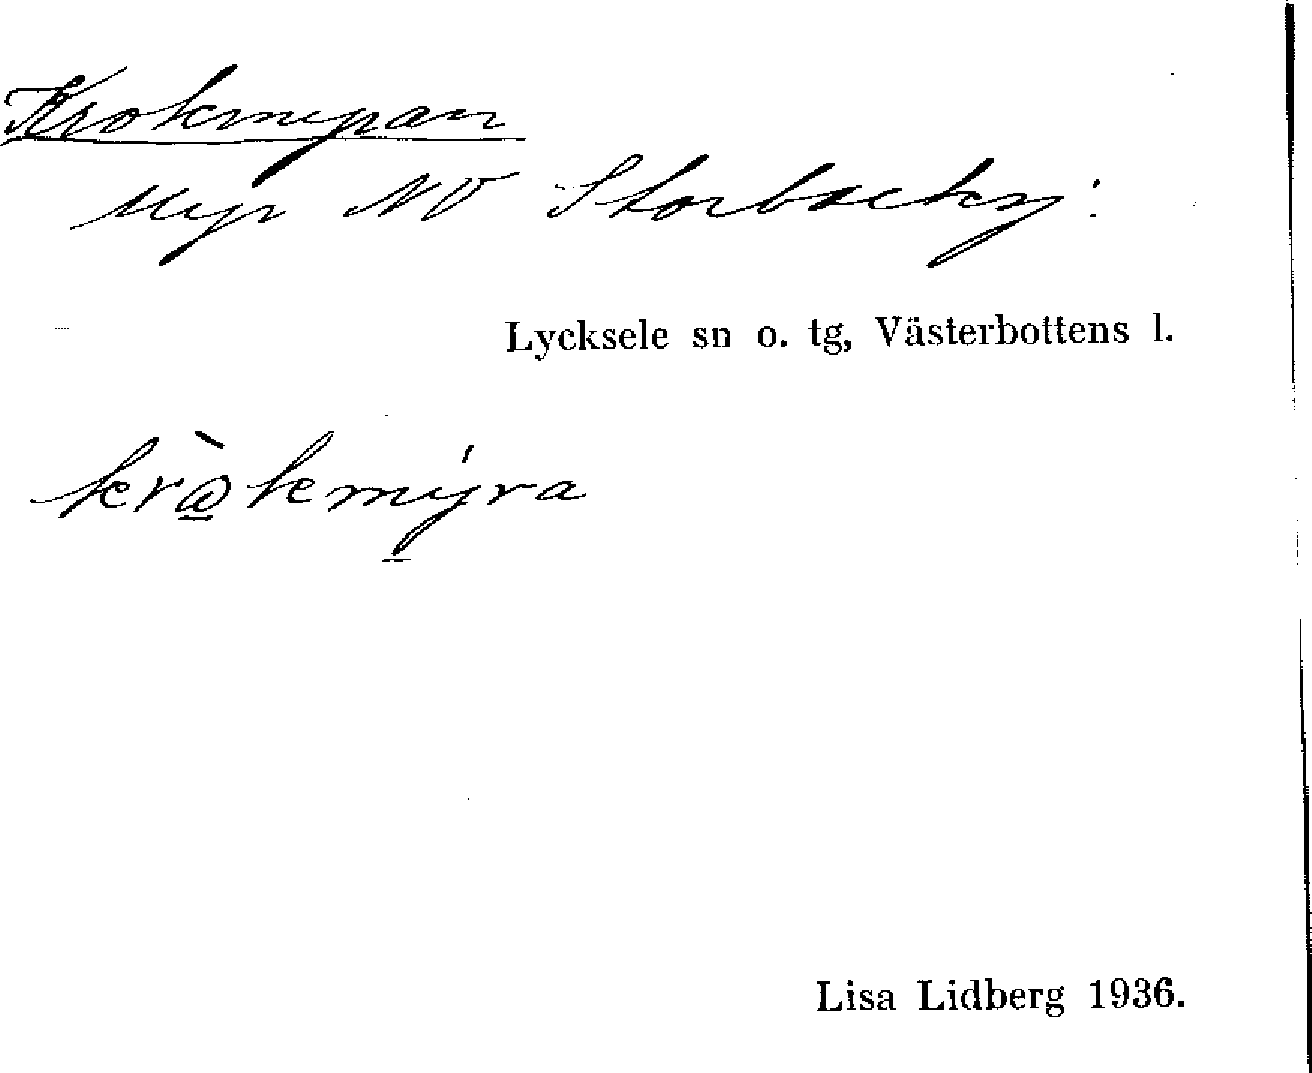 Krokmyran
Myr NV Storbäcksj:
Lycksele sn o. tg, Västerbottens l.
krὼ̲kmý̲ra
Lisa Lidberg 1936.